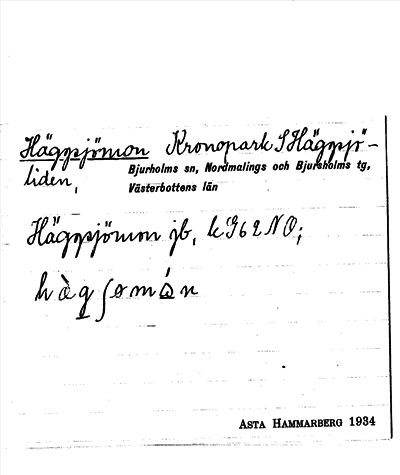 Häggsjömon Kronopark S Häggsjö-
liden,
Bjurholms sn, Nordmalings och Bjurholms tg,
Västerbottens län
Häggsjömon jb, k G62NO;
hàgʃomån
ASTA HAMMARBERG 1934